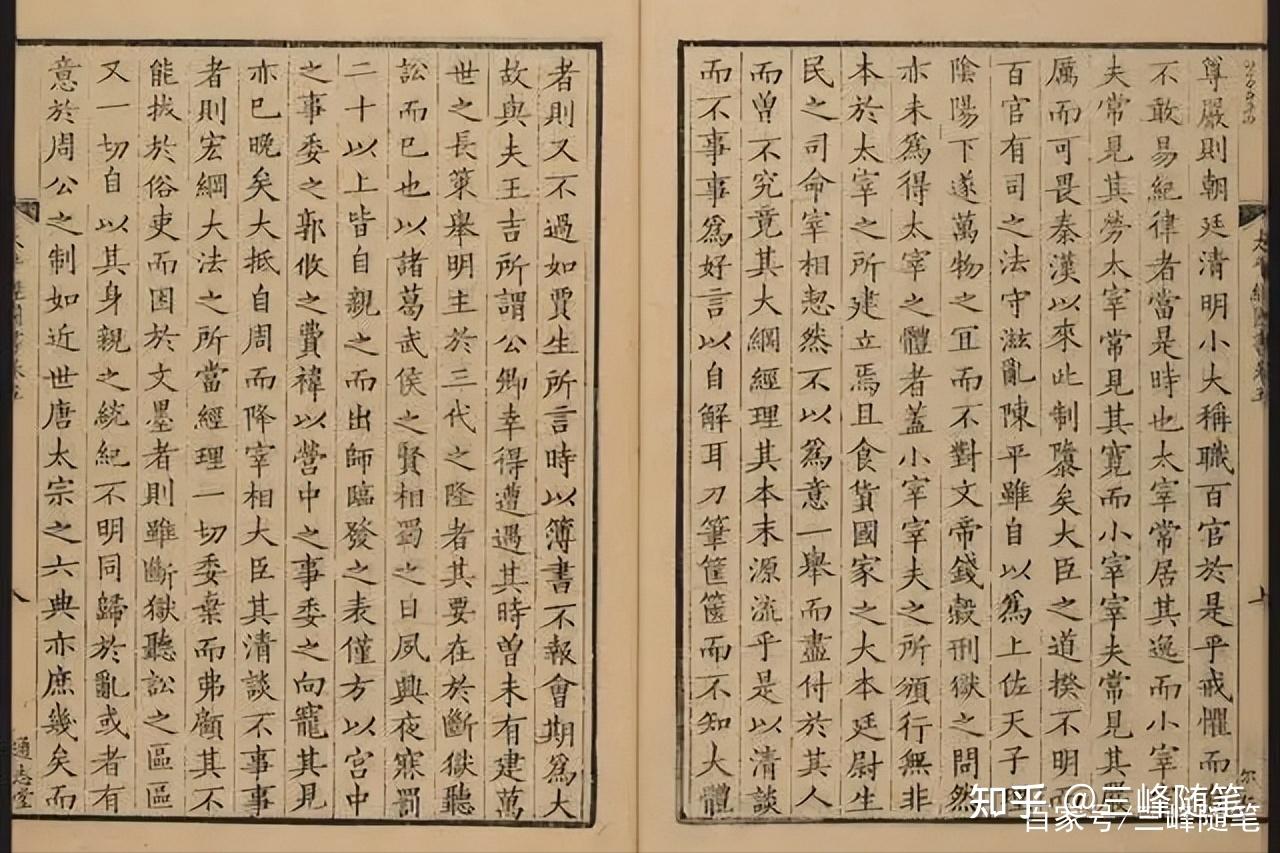 尊嚴則朝廷清明小大稱職百官於是乎戒懼而
不敢易紀律者當是時也太宰常居其逸而小宰
夫常見其勞太宰常見其寬而小宰宰夫常見其
厲而可畏秦漢以來此制隳矣大臣之道揆不明
百官有司之法守滋亂陳平雖自以爲上佐天子理
陰陽下遂萬物之冝而不對文帝錢穀刑獄之問然
亦未爲得太宰之體者蓋小宰宰夫之所頒行無非
本於太宰之所建立焉且食貨國家之大本廷尉生
民之司命宰相恝然不以爲意一舉而盡付於其人
而曽不究竟其大綱經理其本末源流乎是以清談
而不事事爲好言以自解耳刀筆筐篋而不知大體
者則又不過如賈生所言時以簿書不報會期爲大
故與夫王吉所謂公卿幸得遭遇其時曽未有建萬
世之長策舉明主於三代之隆者其要在於斷獄聽
訟而已也以諸葛武侯之賢相蜀之日夙興夜寐罰
二十以上皆自親之而出師臨發之表僅方以宮中
之事委之郭攸之費禕以營中之事委之向寵其見
亦已晚矣大抵自周而降宰相大臣其清談不事事
者則宏綱大法之所當經理一切委棄而弗顧其不
能拔於俗吏而困於文墨者則雖斷獄聽訟之區區
又一切自以其身親之統紀不明同歸於亂或者有
意於周公之制如近世唐太宗之六典亦庶幾矣而
八
通志堂
知乎 @三峰随笔
百家号/三峰随笔